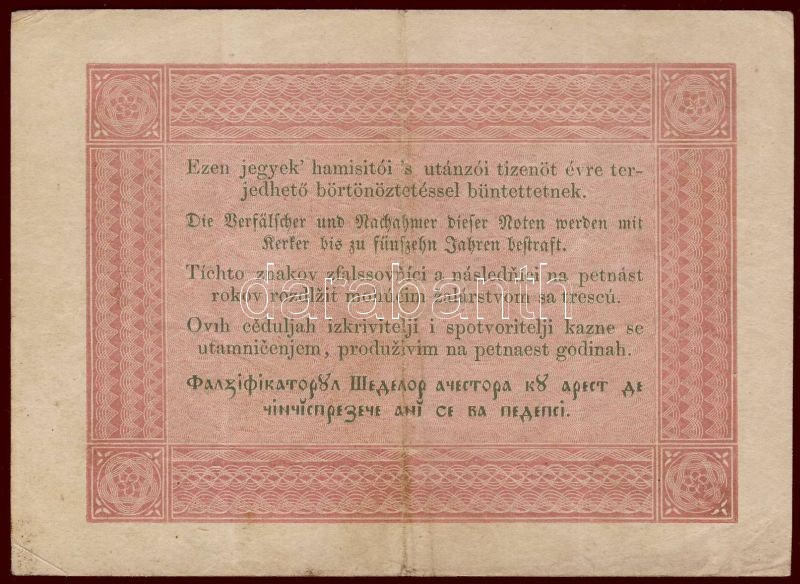 Ezen jegyek' hamisitói 's utánzói tizenöt évre ter-
jedhető börtönöztetéssel büntettetnek.
Die Verfälscher und Nachahmer dieser Noten werden mit
Kerker bis zu fünfzehn Jahren bestraft.
Tíchto znakov zfalssovňíci a následňíci na petnást
rokov rozdlžit mohúcim žalárstvom sa trescú.
darabanth
Ovih céduljah izkrivitelji i spotvoritelji kazne se
utamničenjem, produživim na petnaest godinah.
Фалзіфікаторꙋл Шеделор ачестора кꙋ арест де
чінчіспрезече ані се ва педепсі.